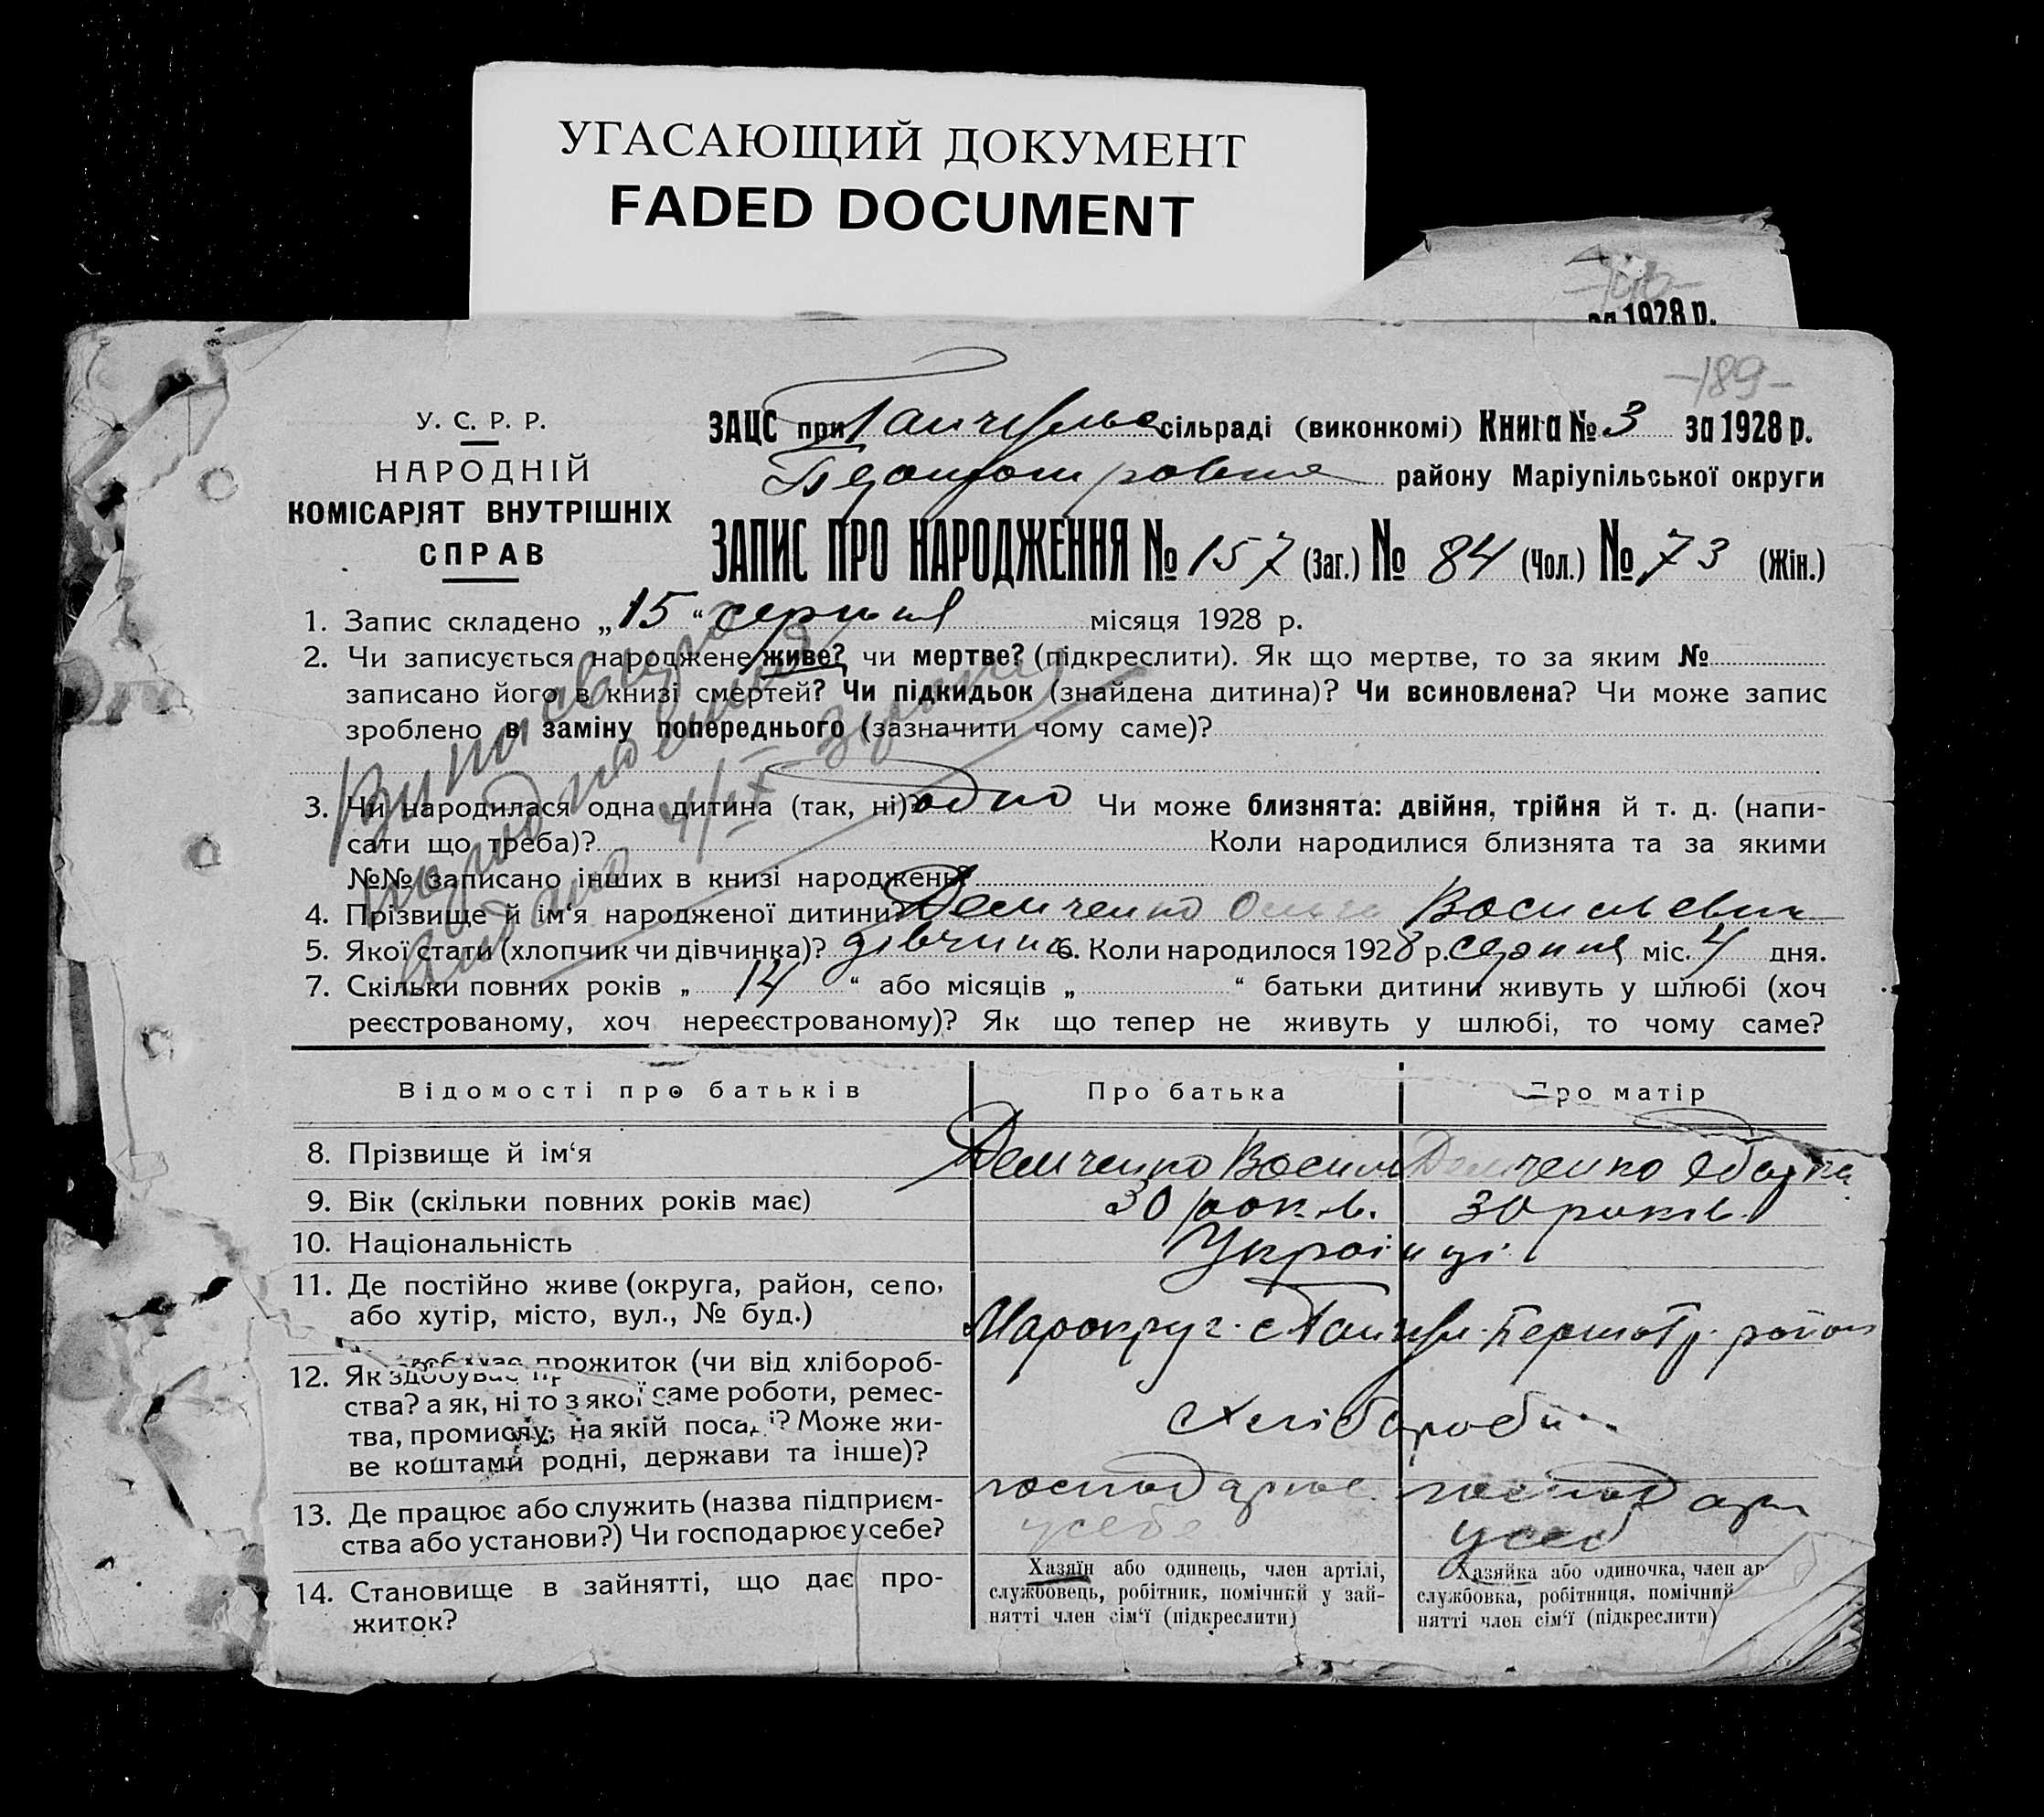 УГАСАЮЩИЙ ДОКУМЕНТ
FADED DOCUMENT
за 1928 р.
-189-
У. С. Р. Р.
НАРОДНІЙ
КОМІСАРІЯТ ВНУТРІШНІХ
СПРАВ
ЗАЦС при сільраді (виконкомі) Книга № 3 за 1928 р.
району Маріупільської округи
ЗАПИС ПРО НАРОДЖЕННЯ № 157 (Заг.) № 84 (Чол.) № 73 (Жін.)
1. Запис складено „15“ серпня місяця 1928 р.
2. Чи записується народжене живе? чи мертве? (підкреслити). Як що мертве, то за яким №
записано його в книзі смертей? Чи підкидьок (знайдена дитина)? Чи всиновлена? Чи може запис
зроблено в заміну попереднього (зазначити чому саме)?
3. Чи народилася одна дитина (так, ні)? одно Чи може близнята: двійня, трійня й т. д. (напи-
сати що треба)? Коли народилися близнята та за якими
№№ записано інших в книзі народжень?
4. Прізвище й ім‘я народженої дитини? Демченко Ольга Васильевна
5. Якої стати (хлопчик чи дівчинка)? дівчина 6. Коли народилося 1928 р. серпня міс. 4 дня.
7. Скільки повних років „ 14 “ або місяців „ “ батьки дитини живуть у шлюбі (хоч
реєстрованому, хоч нереєстрованому)? Як що тепер не живуть у шлюбі, то чому саме?
Відомості про батьків Про батька Про матір
8. Прізвище й ім‘я Демченко Васил Демченко
9. Вік (скільки повних років має) 30 років. 30 років.
10. Національність Українці
11. Де постійно живе (округа, район, село,
або хутір, місто, вул., № буд.) район
12. Як здобуває прожиток (чи від хлібороб-
ства? а як, ні то з якої саме роботи, ремес-
тва, промислу, на якій посаді? Може жи-
ве коштами родні, держави та інше)?
13. Де працює або служить (назва підприєм-
ства або установи?) Чи господарює у себе?
усебе усеб
14. Становище в зайнятті, що дає про-
житок?
Хазяїн або одинець, член артілі,
службовець, робітник, помічний у зай-
нятті член сім‘ї (підкреслити)
Хазяйка або одиночка, член ар
службовка, робітниця, помічний
нятті член сім‘ї (підкреслити)